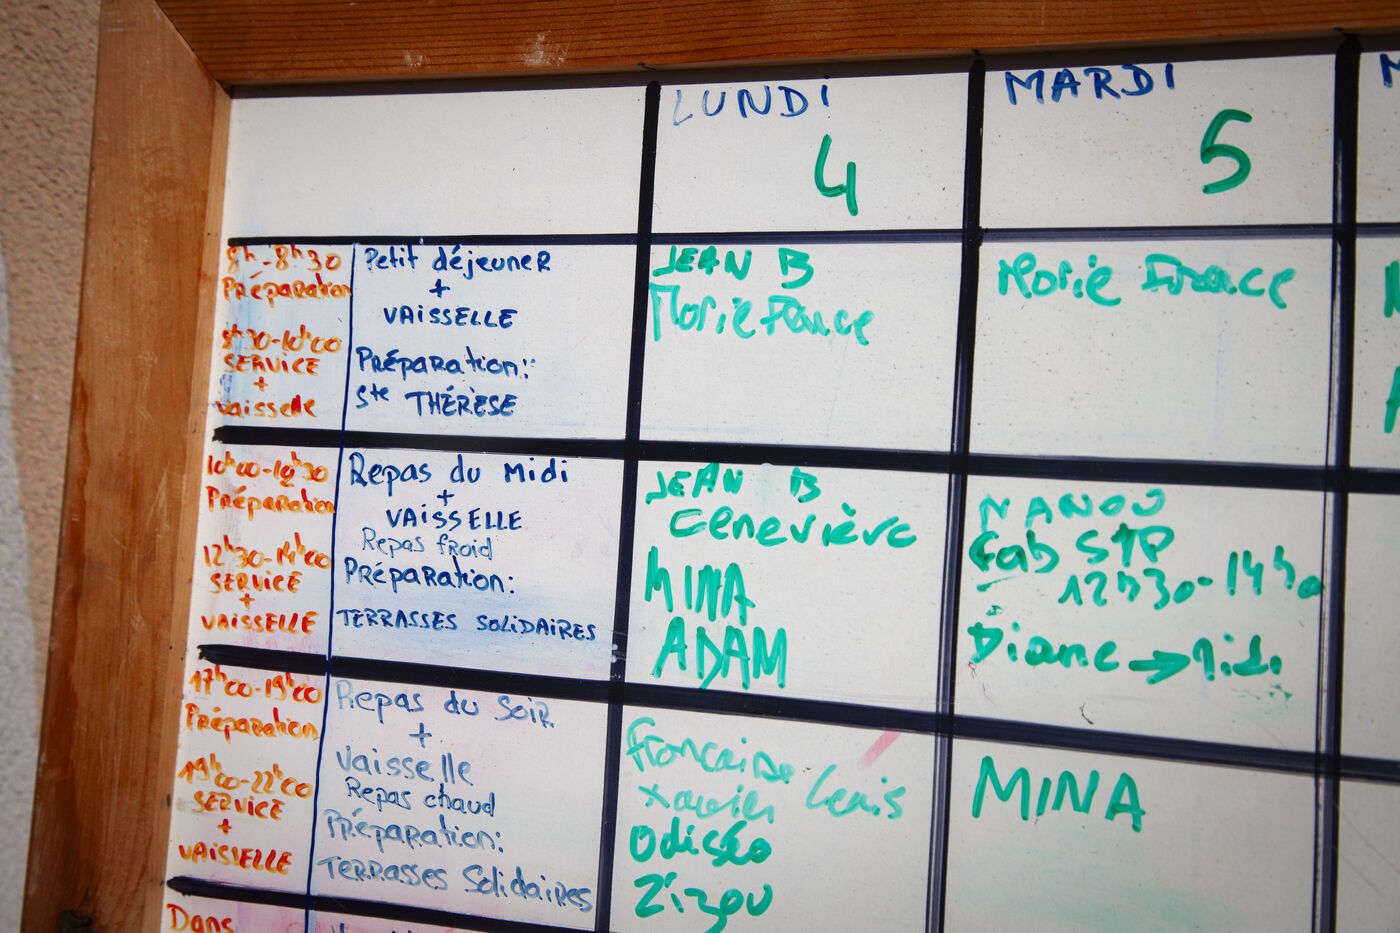 LUNDI
4
MARDI
5
8h-8h30
Préparation
8h30-10h00
SERVICE
+
vaisselle
Petit déjeuner
+
VAISSELLE
Préparation:
Ste THÉRÈSE
JEAN B
Marie France
Marie France
10h00-12h30
Préparation
12h30-14h00
SERVICE
+
VAISSELLE
Repas du Midi
+
VAISSELLE
Repas froid
Préparation:
TERRASSES SOLIDAIRES
JEAN B
Geneviève
MINA
ADAM
NANOU
Gab STP
12h30-14h30
Diane → Midi
17h00-19h00
Préparation
19h00-22h00
SERVICE
+
VAISSELLE
Repas du Soir
+
Vaisselle
Repas chaud
Préparation:
Terrasses Solidaires
Françoise
Xavier
Odisséo
Zizou
MINA
Dans